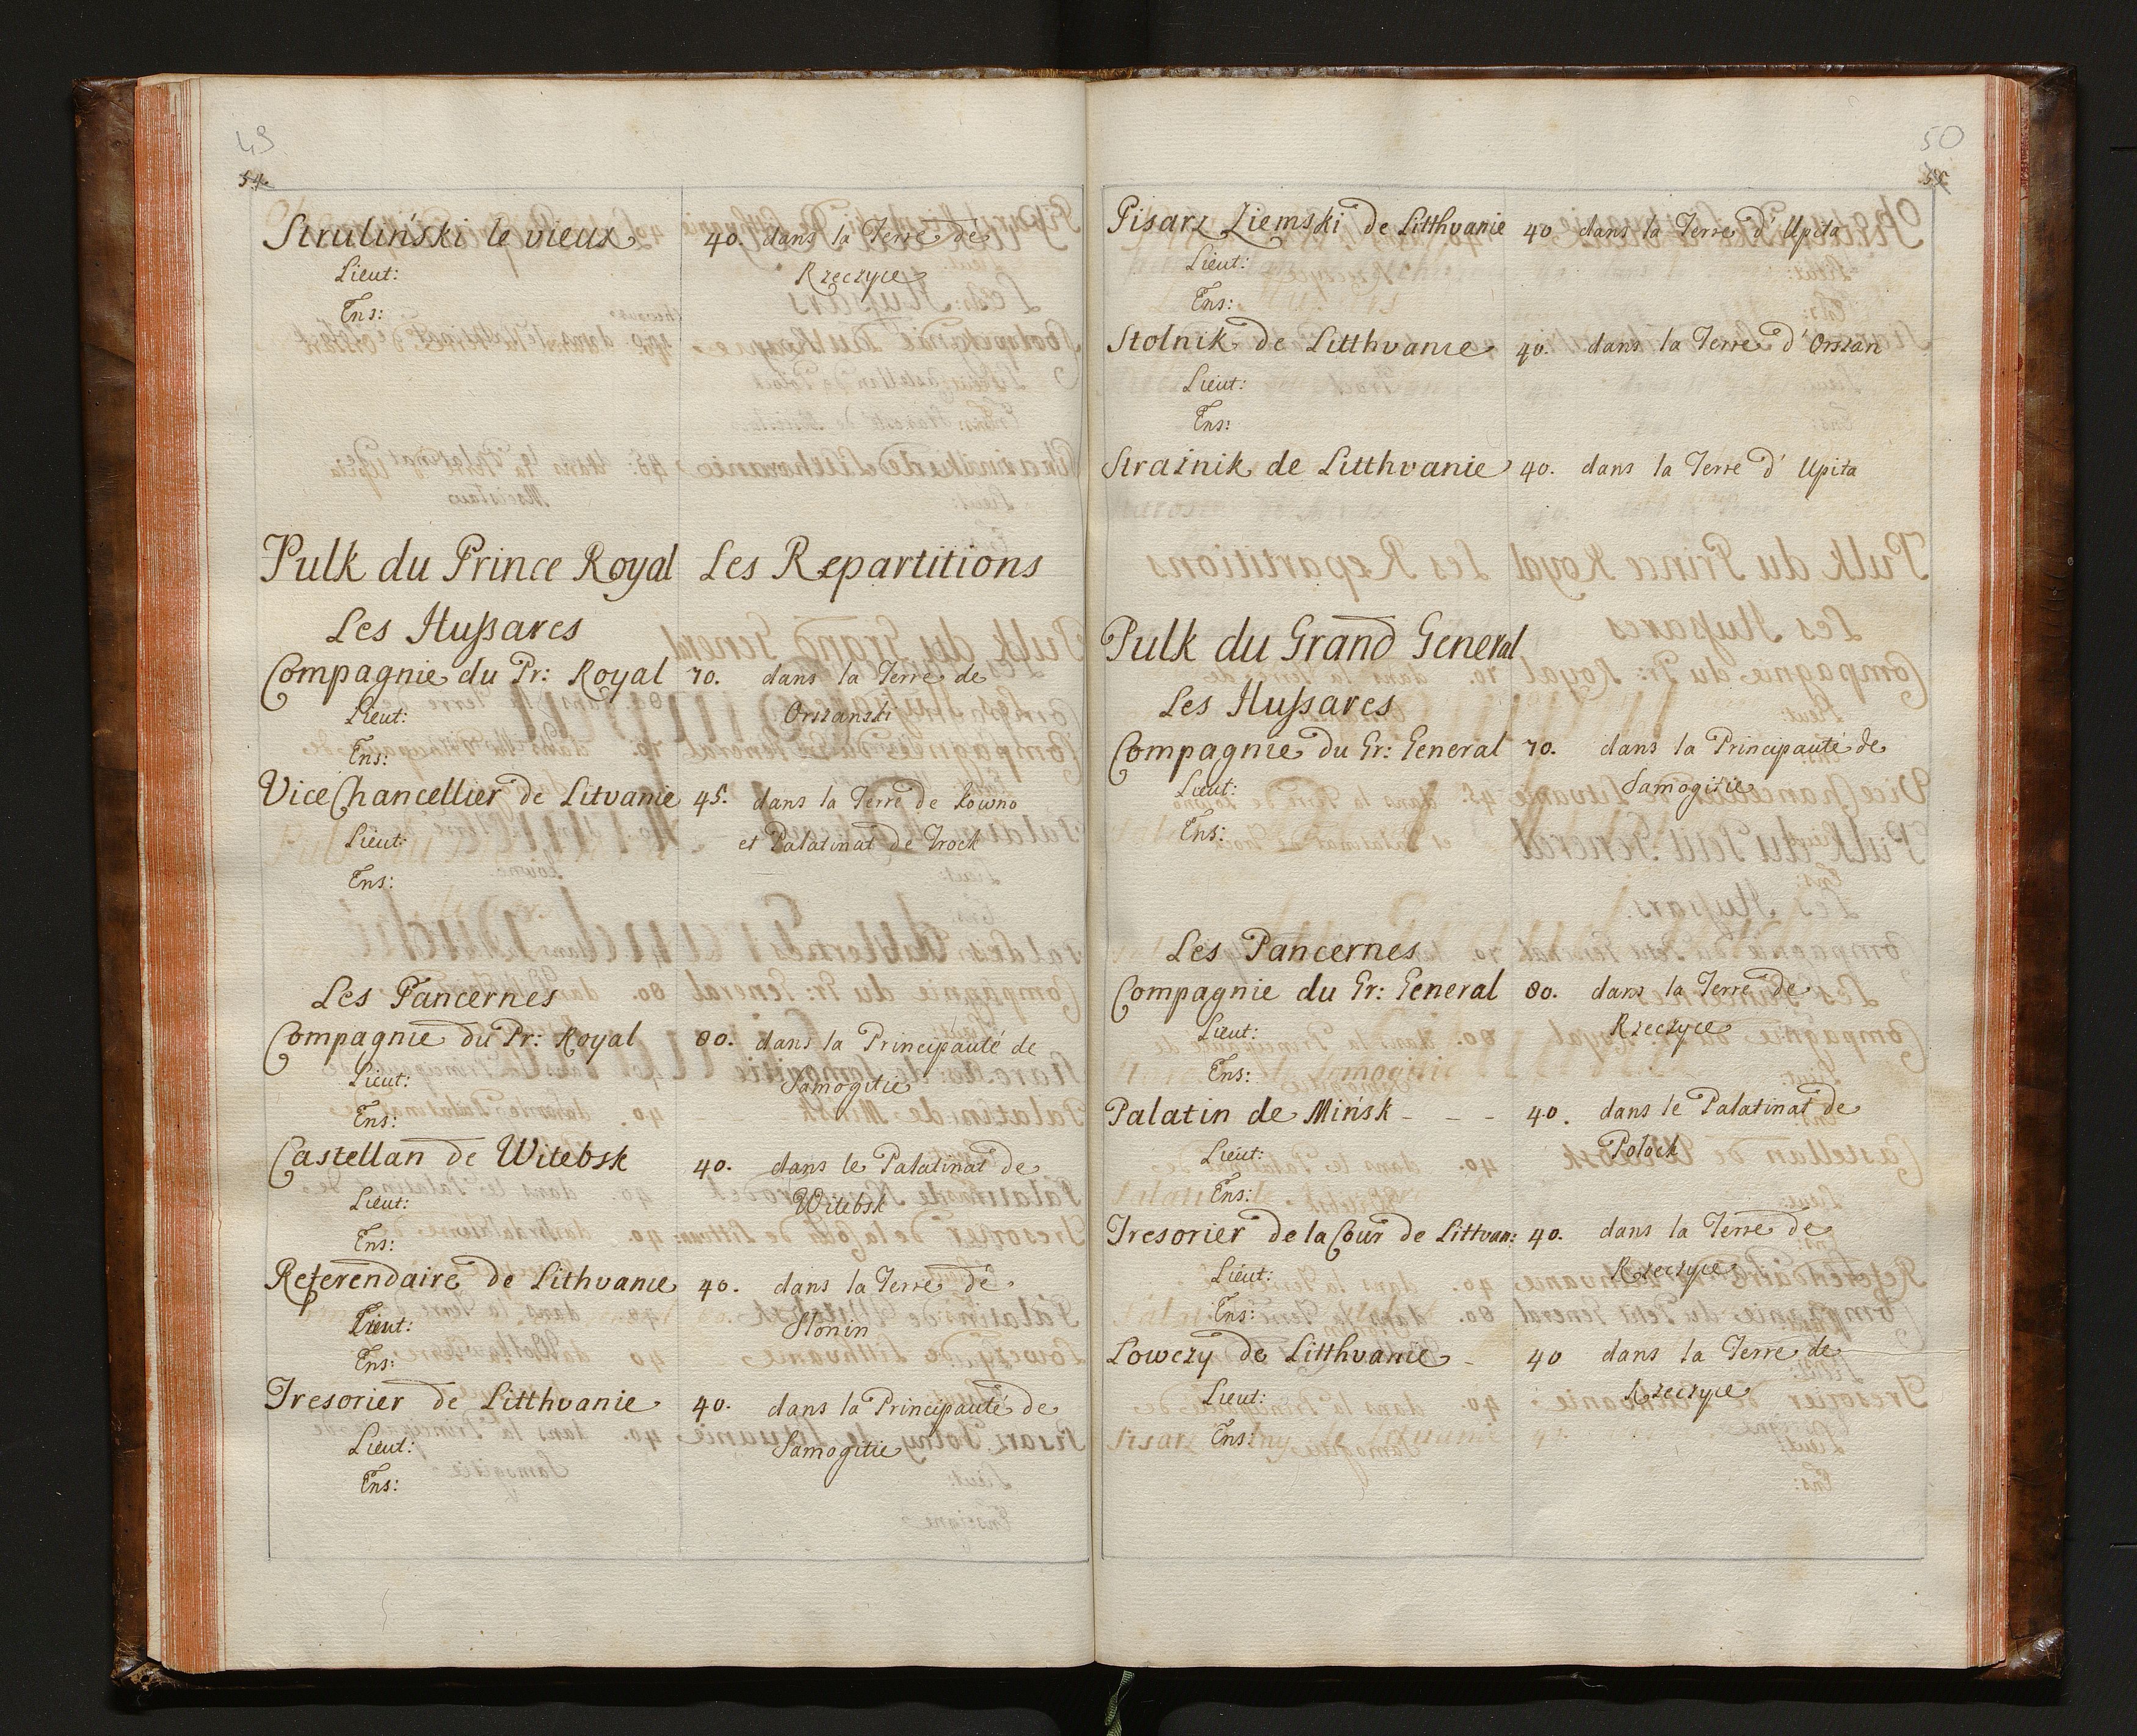 49
54.
Struliński le vieux 40. dans la Terre de
Lieut: Rzeczyce
Ens:
Pulk du Prince Royal Les Repartitions
Les Hußares
Compagnie du Pr: Royal 70. dans la Terre de
Lieut: Orszanski
Ens:
Vice Chancellier de Litvanie 45. dans la Terre de Kowno
Lieut: et Palatinat de Trock
Ens:
Les Pancernes
Compagnie du Pr: Royal 80. dans la Principauté de
Lieut: Samogitie
Ens:
Castellan de Witebsk 40. dans le Palatinat de
Lieut: Witebsk
Ens:
Referendaire de Lithvanie 40. dans la Terre de
Lieut: Slonin
Ens:
Tresorier de Litthvanie 40. dans la Principauté de
Lieut: Samogitie
Ens:
50
55.
Pisarz Ziemski de Litthvanie 40 dans la Terre d'Upita
Lieut:
Ens:
Stolnik de Litthvanie 40. dans la Terre d'Orszan
Lieut:
Ens:
Strażnik de Litthvanie 40. dans la Terre d'Upita
Pulk du Grand General
Les Hußares
Compagnie du Gr: General 70. dans la Principauté de
Lieut: Samogitie
Ens:
Les Pancernes
Compagnie du Gr: General 80. dans la Terre de
Lieut: Rzeczyce
Ens:
Palatin de Mińsk - - - 40. dans le Palatinat de
Lieut: Polock
Ens:
Tresorier de la Cour de Littvan: 40. dans la Terre de
Lieut: Rzeczyce
Ens:
Lowczy de Litthvanie - 40 dans la Terre de
Lieut: Rzeczyce
Ens: